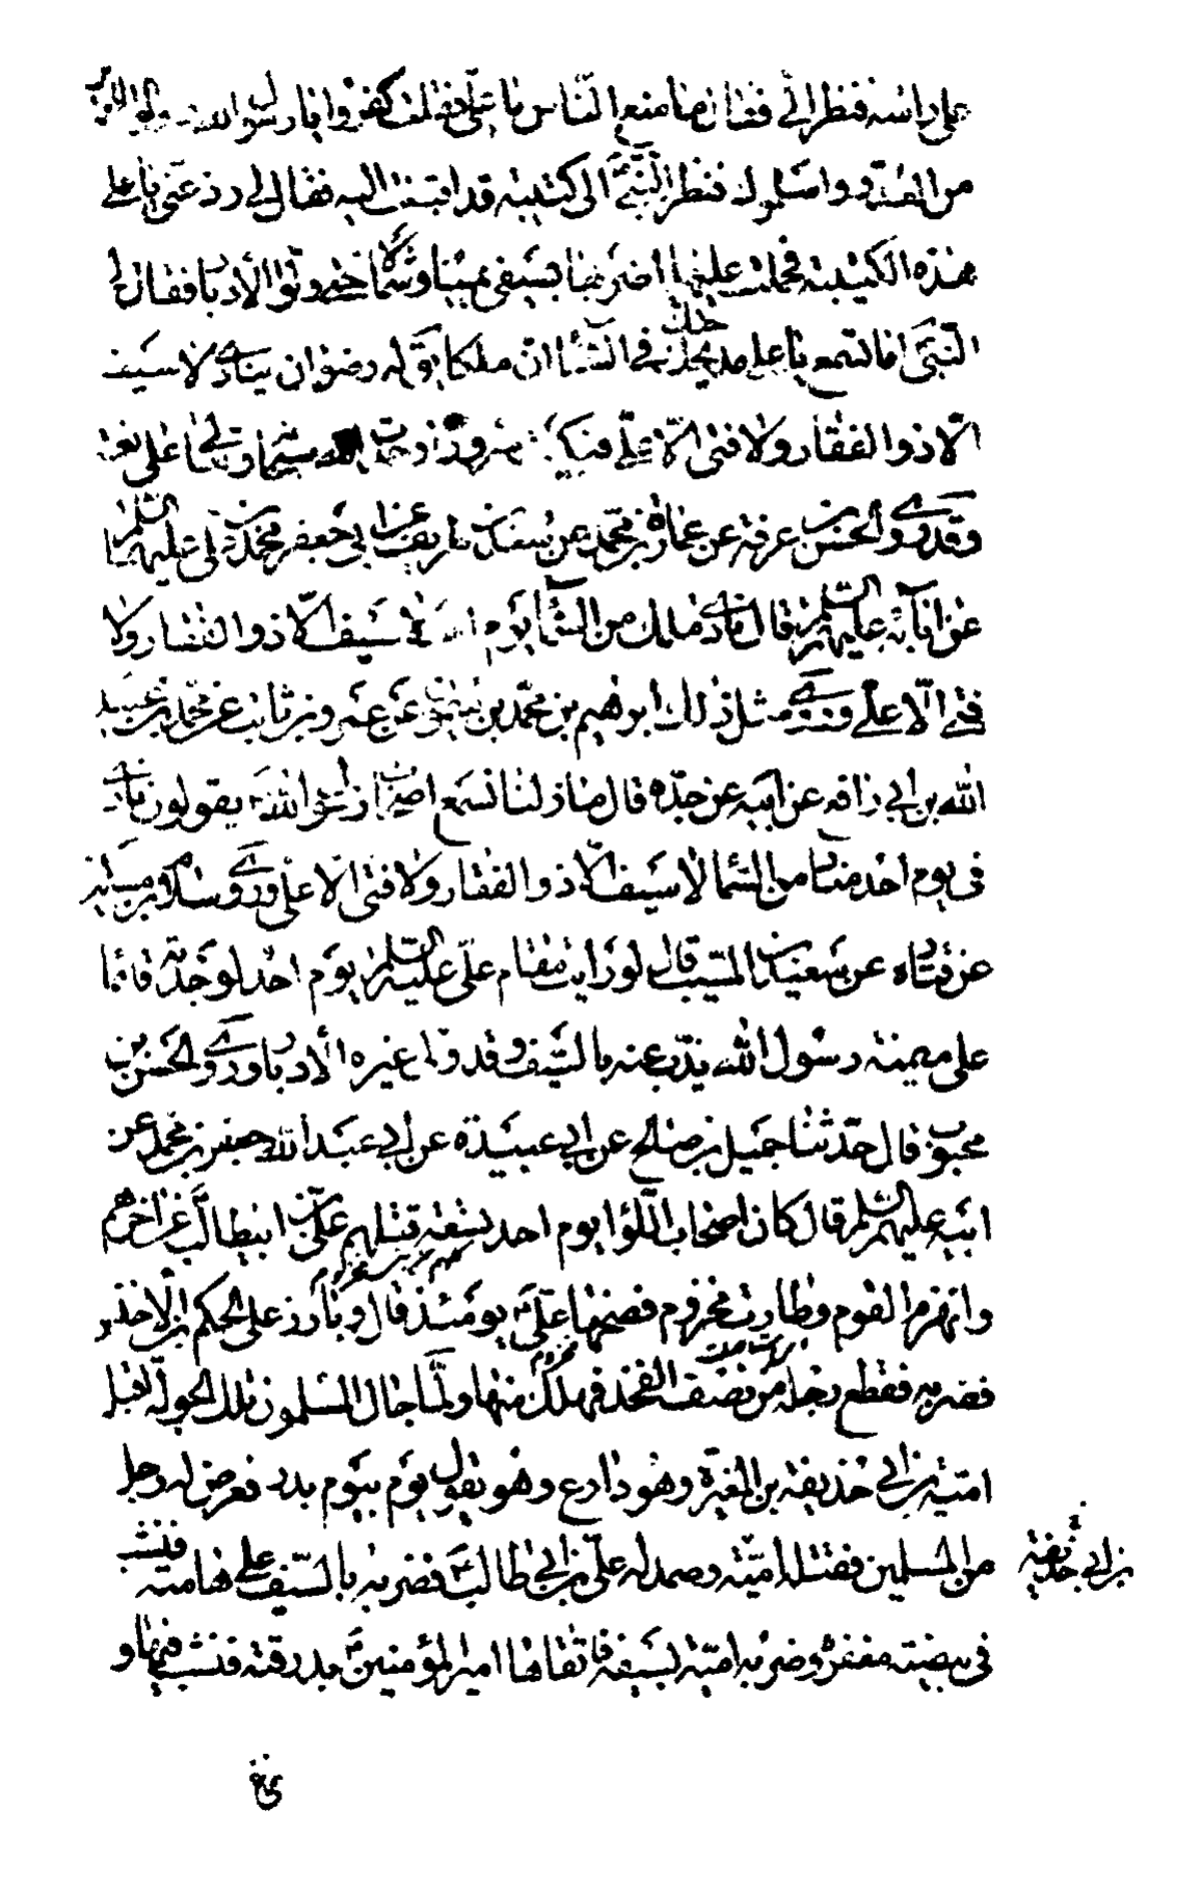 على راسه فنظر الى فقال ما صنع الناس يا على فقلت كفروا يا رسول الله وولوا الدبر
من العدو واسلموك فنظر النبى الى كتيبة قد اقبلت اليه فقال لى رد عنى يا على
هذه الكتيبة فحملت عليها اضربها بسيفى يمينا وشمالا حتى ولوا الأدبار فقال لى
النبى اما تسمع يا على مديحك فى السماء ان ملكا يقال له رضوان ينادى لا سيف
الا ذو الفقار ولا فتى الا على فبكيت سرورا وحمدت الله سبحانه وتعالى على نعمته
وقد روى الحسن بن عرفة عن عمارة بن محمد عن سعد بن طريف عن ابى جعفر محمد بن على عليهما السلم
عن آبائه عليهم السلم قال نادى ملك من السماء يوم احد لا سيف الا ذو الفقار ولا
فتى الا على وروى مثل ذلك ابرهيم بن محمد بن ميمون عن عمرو بن ثابت عن محمد بن عبيد
الله بن ابى رافع عن ابيه عن جده قال ما زلنا نسمع اصحاب رسول الله يقولون نادى
فى يوم احد مناد من السماء لا سيف الا ذو الفقار ولا فتى الا على وروى سلام بن مسكين
عن قتاده عن سعيد بن المسيب قال لو رايت مقام على عليه السلم يوم احد لوجدته قائما
على ميمنة رسول الله يذب عنه بالسيف وقد ولى غيره الأدبار وروى الحسن بن
محبوب قال حدثنا جميل بن صالح عن ابى عبيدة عن ابى عبد الله جعفر بن محمد عن
ابيه عليهم السلم قال كان اصحاب اللواء يوم احد تسعة قتلهم على بن ابيطالب عن اخرهم
وانهزم القوم وطارت مخزوم فضحها على يومئذ قال وبارز على الحكم بن الاخنس
فضربه فقطع رجله من نصف الفخذ فهلك منها ولما جال المسلمون تلك الجولة اقبل
امية بن ابى حذيفة بن المغيرة وهو دارع وهو يقول يوم بيوم بدر فعرض له رجل
من المسلمين فقتله امية وصمد له على بن ابى طالب فضربه بالسيف على هامته فنشب
بن ابى حذيفة
فى بيضة مغفره وضربه امية بسيفه فاتقاها امير المؤمنين بدرقته فنشب فيها و